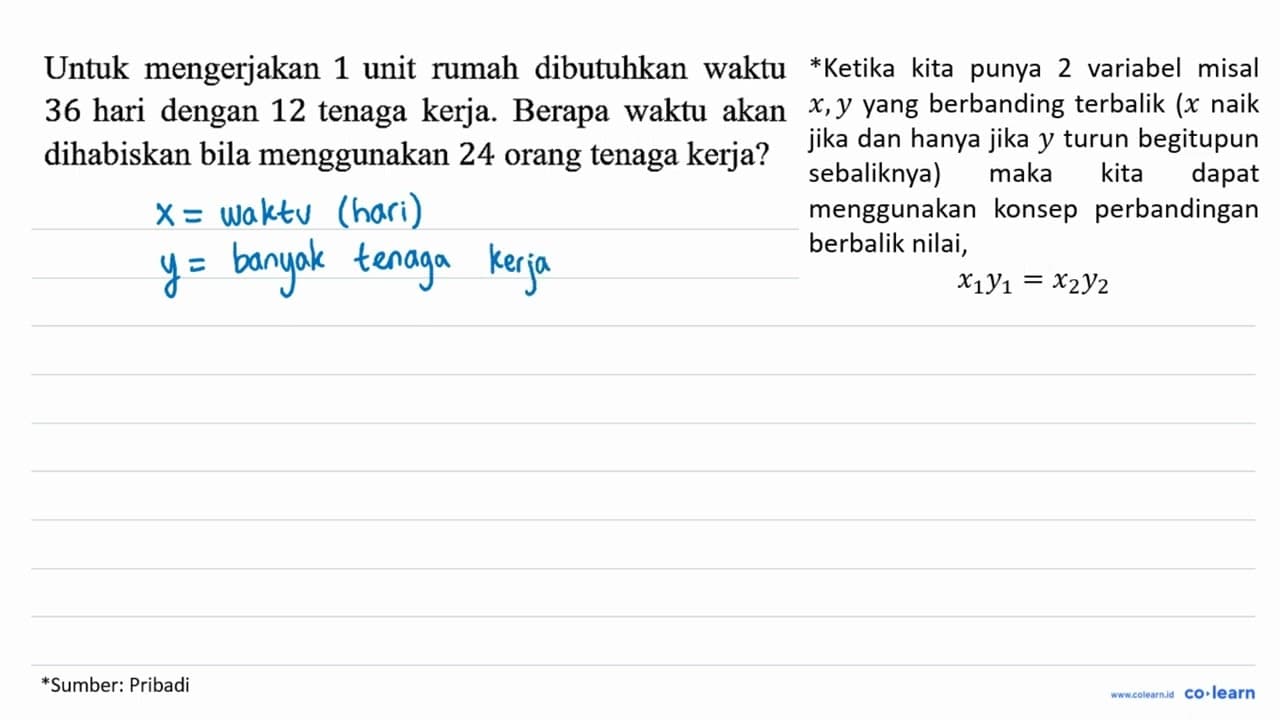 Untuk mengerjakan 1 unit rumah dibutuhkan waktu
36 hari dengan 12 tenaga kerja. Berapa waktu akan
dihabiskan bila menggunakan 24 orang tenaga kerja?
x = waktu (hari)
y = banyak tenaga kerja
*Ketika kita punya 2 variabel misal
x, y yang berbanding terbalik (x naik
jika dan hanya jika y turun begitupun
sebaliknya) maka kita dapat
menggunakan konsep perbandingan
berbalik nilai,
x₁y₁ = x₂y₂
*Sumber: Pribadi
www.colearn.id co•learn